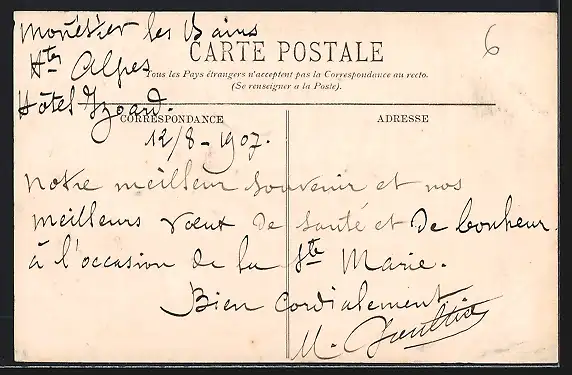 Monêtier les Bains
Htes Alpes
Hôtel Izoard.
6
CARTE POSTALE
Tous les Pays étrangers n'acceptent pas la Correspondance au recto.
(Se renseigner à la Poste).
CORRESPONDANCE
ADRESSE
12/8-1907.
Notre meilleur souvenir et nos
meilleurs vœux de santé et de bonheur
à l'occasion de la Ste Marie.
Bien Cordialement
M.